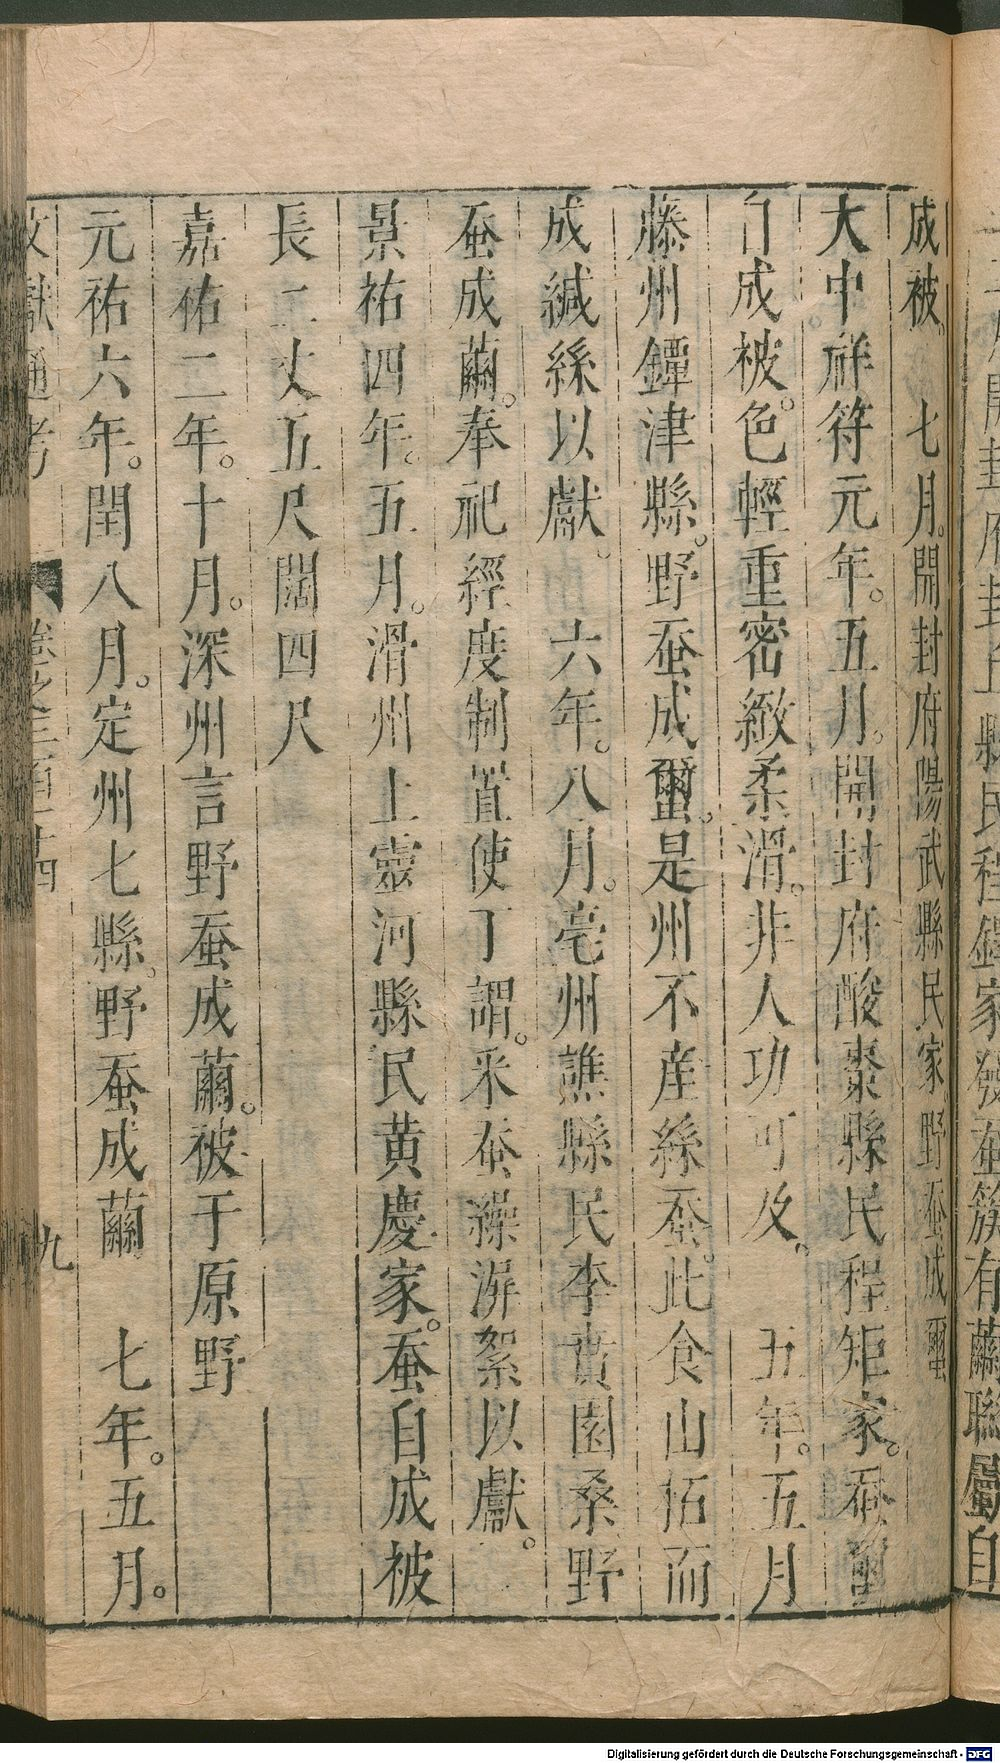 成被。七月。開封府陽武縣民家。野蚕成蠒
大中祥符元年。五月。開封府酸棗縣民程矩家。蚕蠒
自成被。色輕重密緻柔滑。非人功可及。五年。五月
藤州鐔津縣。野蚕成蠒。是州不產絲蚕。此食山柘而
成緘絲以獻。六年。八月。亳州譙縣民李貴園桑野
蚕成繭。奉祀經度制置使丁謂。采蚕繰湅絮以獻。
景祐四年。五月。滑州上靈河縣民黃慶家。蚕自成被
長二丈五尺闊四尺
嘉祐二年。十月。深州言野蚕成繭。被于原野
元祐六年。閏八月。定州七縣。野蚕成繭 七年。五月。
文獻通考 卷之三百十四 九